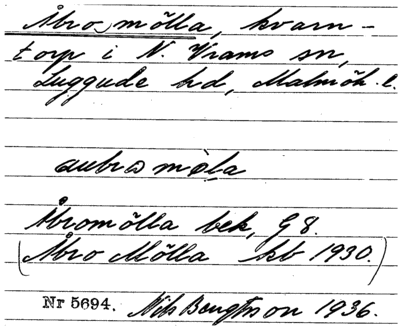 Åbro mölla, kvarn-
torp i N. Vrams sn,
Luggude hd, Malmöh. l.
aubro möla
Åbromölla bek, G 8.
(Åbro Mölla kb 1930.)
Nr 5694. Nils Bengtsson 1936.